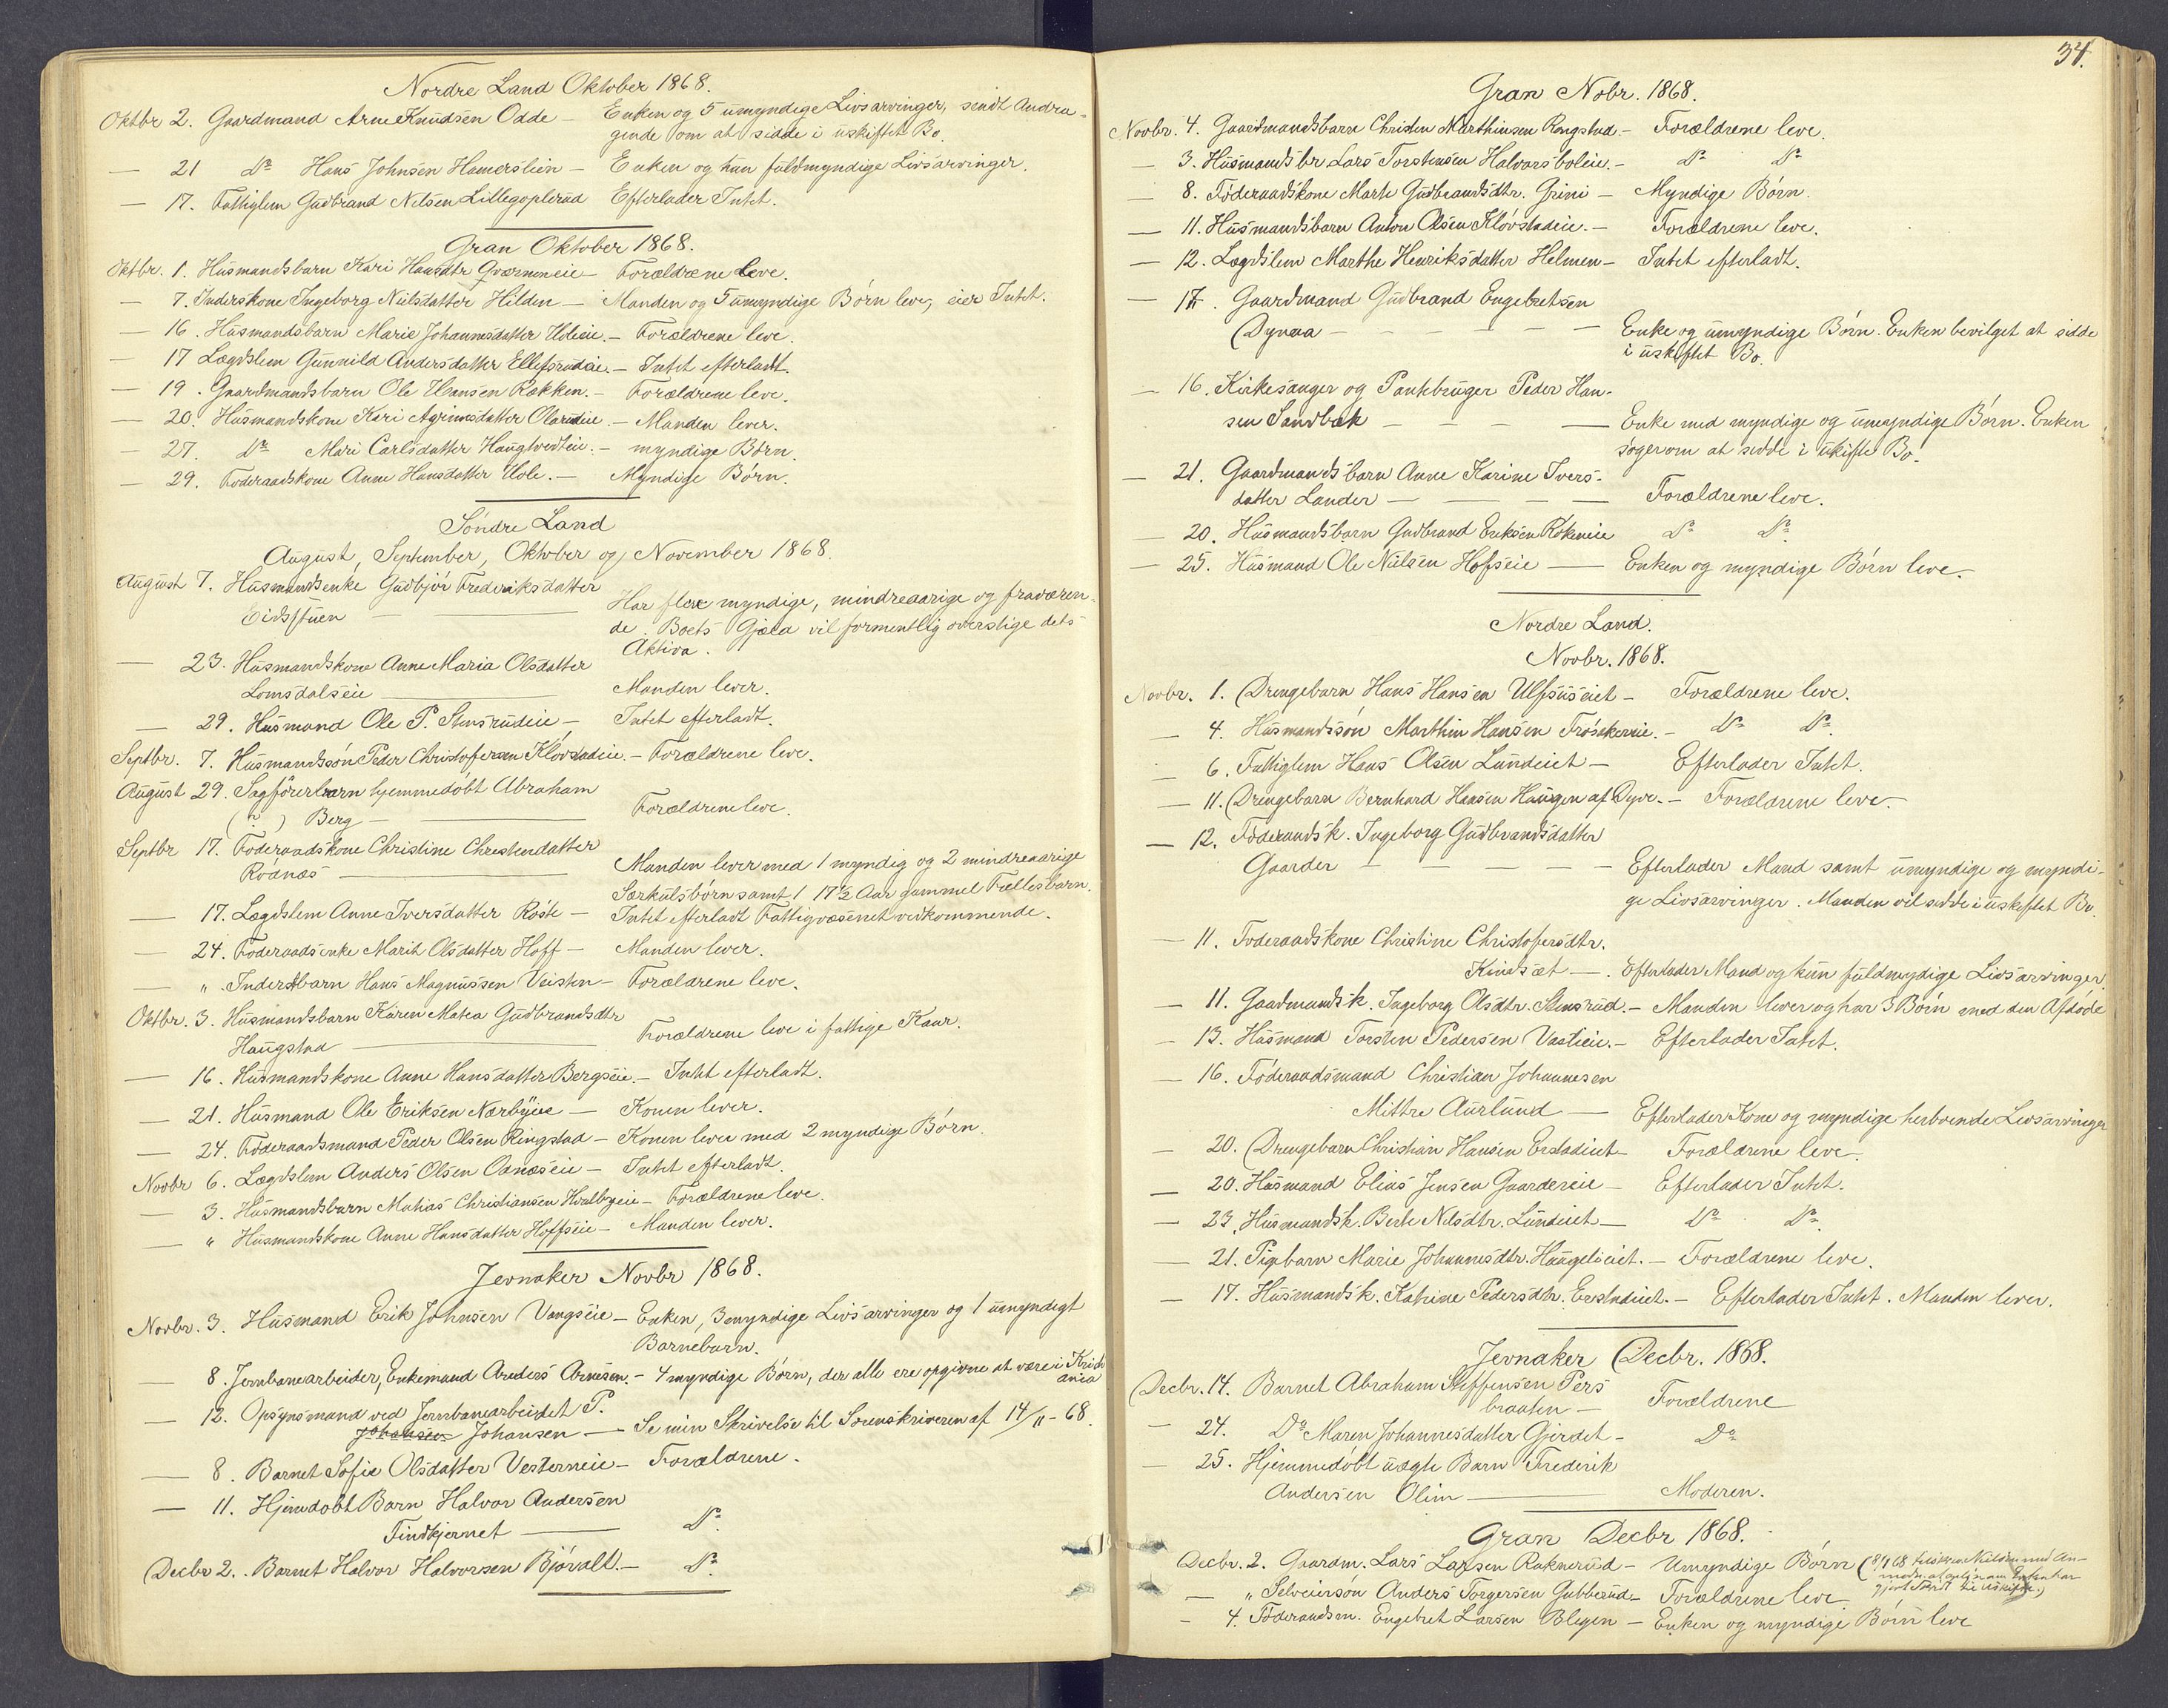 Nordre Land Oktober 1868.
Oktbr 2. Gaardmand Arne Knudsen Odde – Enken og 5 umyndige Livsarvinger, sendt Andra-
gende om at sidde i uskiftet Bo.
— 21 Do Hans Johnsen Hamerslien – Enken og kun fuldmyndige Livsarvinger.
— 17. Fattiglem Gudbrand Nilsen Lillegoplerud Efterlader Intet.
Gran Oktober 1868.
Oktbr. 1. Husmandsbarn Kari Hansdtr Gværneneie – Forældrene leve.
— 7. Inderskone Ingeborg Nielsdatter Hilden – Manden og 5 umyndige Børn leve, eier Intet.
— 16. Husmandsbarn Marie Johannesdatter – Forældrene leve.
— 17 Lægdslem Gunnild Andersdatter Ellefsrudeie. – Intet efterladt.
— 19. Gaardmandsbarn Ole Hansen Rækken. – Forældrene leve.
— 20. Husmandskone Kari Agrimsdatter Olerudeie. – Manden lever.
— 27. Do Mari Carlsdatter Haugtvedteie. – myndige Børn.
— 29. Føderaadskone Anne Hansdatter Hole. – Myndige Børn.
Søndre Land
August, September, Oktober og November 1868.
August 7. Husmandsenke Gudbjør Frederiksdatter
Eidsstuen — Har flere myndige, mindreaarige og fraværen-
de. Boets Gjæld vil formentlig overstige dets
Aktiva.
— 23. Husmandskone Anne Maria Olsdatter
Lomsdalseie — Manden lever.
— 29. Husmand Ole P. Stensrudeie – Intet efterladt.
Septbr. 7. Husmandssøn Peder Christofersen Kløvstadeie. – Forældrene leve.
August 29. Sagførerbarn hjemmedøbt Abraham
(?) Berg — Forældrene leve.
Septbr 17. Føderaadskone Christine Christensdatter
Rødnæs — Manden lever med 1 myndig og 2 mindreaarige
Særkulsbørn samt 1 17½ Aar gammel Fællesbarn.
— 17. Lægdslem Anne Iversdatter Røste – Intet efterladt Fattigvæsenet vedkommende.
— 24. Føderaadsenke Marit Olsdatter Hoff – Manden lever.
— " Inderstbarn Hans Magnussen Veisten – Forældrene leve.
Oktbr. 3. Husmandsbarn Karen Matea Gudbrandsdtr
Haugstad — Forældrene leve i fattige Kaar.
— 16. Husmandskone Anne Hansdatter Bergseie. – Intet efterladt.
— 21. Husmand Ole Eriksen Nærbyeie – Konen lever.
— 24. Føderaadsmand Peder Olsen Ringstad – Konen lever med 2 myndige Børn.
Novbr 6. Lægdslem Anders Olsen – Intet efterladt.
— 3. Husmandsbarn Mathias Christiansen Hvalbyeie – Forældrene leve.
— " Husmandskone Anne Hansdatter Hoffseie – Manden lever.
Jevnaker Novbr 1868.
Novbr. 3. Husmand Erik Johnsen Vangseie – Enken, 3 myndige Livsarvinger og 1 umyndigt
Barnebarn.
— 8. Jernbanearbeider, Enkemand Anders Arnesen. – 4 myndige Børn, der alle ere opgivne at være i Kristi
ania
— 12. Opsynsmand ved Jernbanearbeidet P.
Johansen Johansen — Se min Skrivelse til Sorenskriveren af 14/11 - 68.
— 8. Barnet Sofie Olsdatter Vesterneie – Forældrene.
— 11. Hjemdøbt Barn Halvor Andersen
Tindkjernet — Do
Decbr 2. Barnet Halvor Halvorsen Bjøralt. – Do
34.
Gran Nobr. 1868.
Novbr. 4. Gaardmandsbarn Christen Marthinsen Rongstad. – Forældrene leve.
— 3. Husmandsbr Lars Torstensen Halvorsboleie. – Do Do
— 8. Föderaadskone Marte Gudbrandsdtr. Grini – Myndige Børn.
— 11. Husmandsbarn Anton Olsen Kløvstadeie. – Forældrene leve.
— 12. Lægdslem Marthe Henriksdatter Helmen – Intet efterladt.
— 17. Gaardmand Gudbrand Engebretsen
Dynna — Enke og umyndige Børn. Enken bevilget at sidde
i uskiftet Bo.
— 16. Kirkesanger og Pantebruger Peder Han-
sen Sandbæk — Enke med myndige og umyndige Børn. Enken
søger om at sidde i uskifte Bo.
— 21. Gaardmandsbarn Anne Karine Ivers-
datter Lander — Forældrene leve.
— 20. Husmandsbarn Gudbrand Eriksen Rökeneie Do Do
— 25. Husmand Ole Nielsen Hofseie — Enken og myndige Børn leve.
Nordre Land.
Novbr. 1868.
Novbr. 1. Drengebarn Hans Hansen Ulfsuseiet – Forældrene leve.
— 4. Husmandssøn Marthin Hansen Frøsakereie. – Do Do
— 6. Fattiglem Hans Olsen Lundeiet – Efterlader Intet.
— 11. Drengebarn Bernhard Hansen Haugen af Dyve. – Forældrene leve.
— 12. Föderaadsk. Ingeborg Gudbrandsdatter
Gaarder — Efterlader Mand samt umyndige og myndi-
ge Livsarvinger. Manden vil sidde i uskiftet Bo.
— 11. Foderaadskone Christine Christofersdtr.
Kindsæt – Efterlader Mand og kun fuldmydige Livsarvinger.
— 11. Gaardmandsk. Ingeborg Olsdtr. Stensrud. – Manden lever og har 3 Børn med den Afdøde
— 13. Husmand Torsten Pedersen Vasteie. – Efterlader Intet.
— 16. Föderaadsmand Christian Johannesen
Mittre Aurlund — Efterlader Kone og myndige herboende Livsarvinger
— 20. Drengebarn Christian Hansen Erstadeiet – Forældrene leve.
— 20. Husmand Elias Jensen Gaardereie – Efterlader Intet.
— 23. Husmandsk. Berte Nilsdtr. Lundeiet – Do Do
— 21. Pigbarn Marie Johannesdtr. Haugelieiet. – Forældrene leve.
— 17. Husmandsk. Katrine Pedersdtr. Erstadeiet. – Efterlader Intet. Manden lever.
Jevnaker Decbr. 1868.
Decbr. 14. Barnet Abraham Steffensen Pers
braaten – Forældrene
— 24. Do Maren Johannesdatter Gjerdet – Do
— 25. Hjemmedøbt uægte Barn Frederik
Andersen Olim — Moderen.
Gran Decbr 1868.
Decbr. 2. Gaardm. Lars Larsen Raknerud – Umyndige Børn
— " Selveiersøn Anders Torgersen Gubberud – Forældrene leve
— 4. Föderaadsm. Engebret Larsen Blegen – Enken og myndige Børn leve